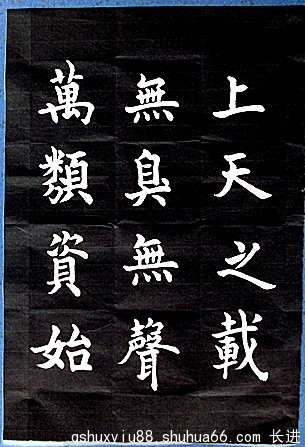 上天之載
無臭無聲
萬類資始
qshuxyju88.shuhua66.com 长进